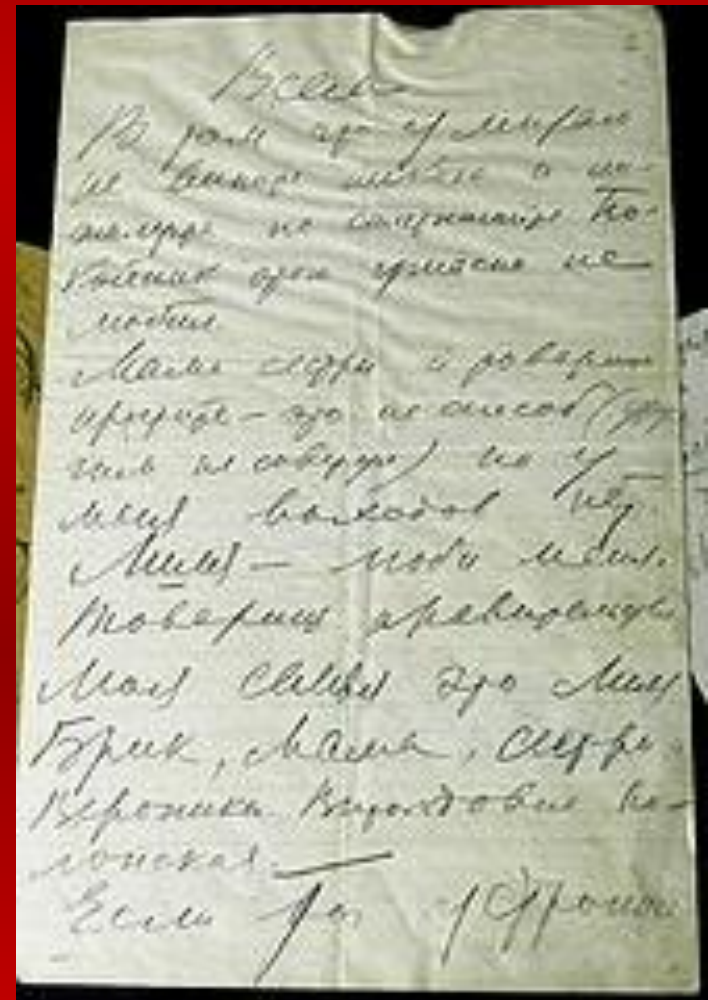 Всем
В том что умираю
не вините никого и по-
жалуйста не сплетничайте По-
койник этого ужасно не
любил
Мама сестры и товарищи
простите – это не способ (дру
гим не советую) но у
меня выходов нет.
Лиля – люби меня.
Товарищ правительство
моя семья это Лиля
Брик, мама, сестры
Вероника Витольдовна По-
лонская. —
Если ты устроишь